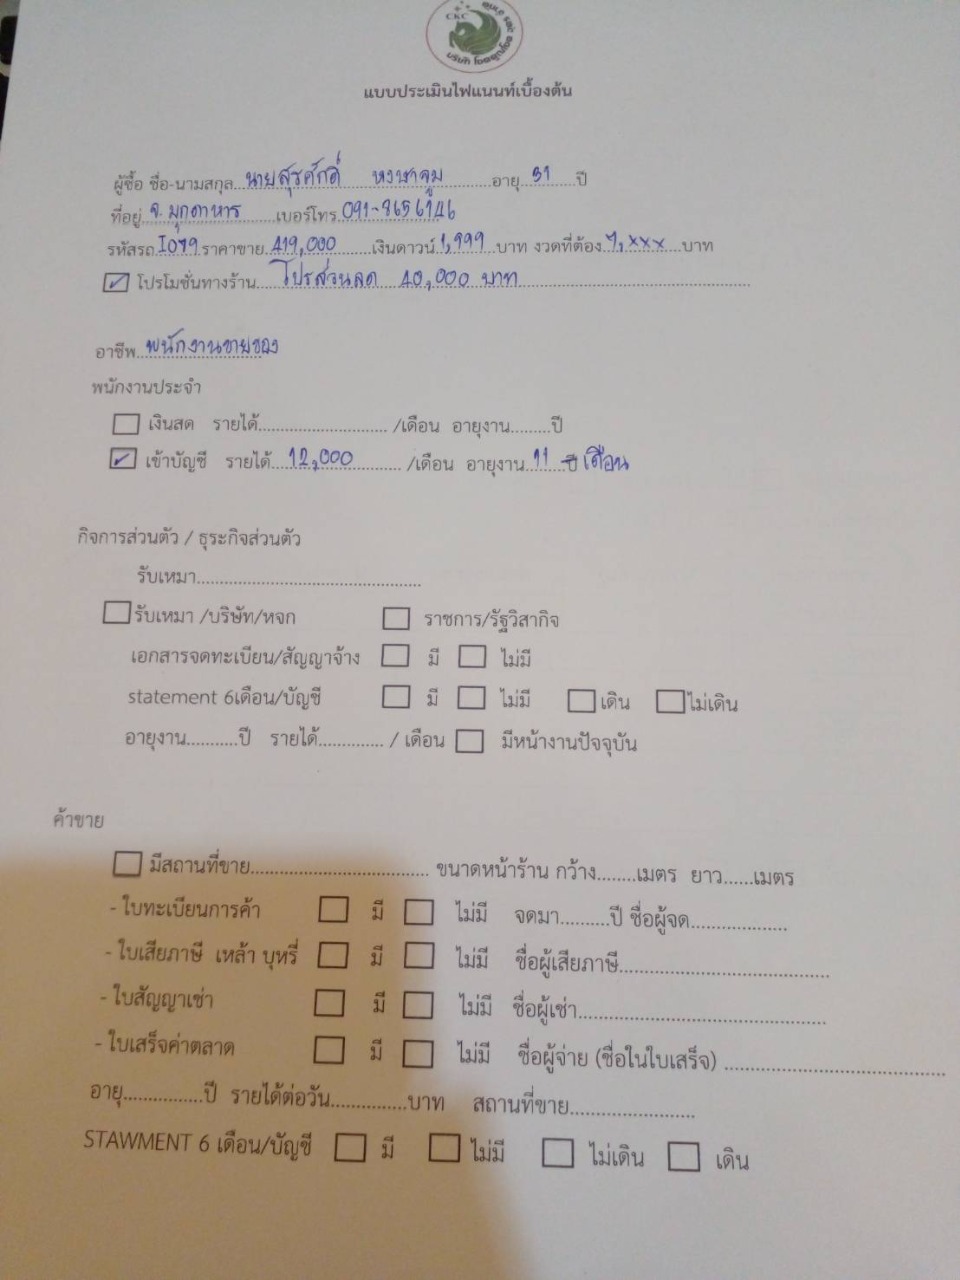 CKC
แบบประเมินไฟแนนท์เบื้องต้น
ผู้ซื้อ ชื่อ-นามสกุล...นายสุรศักดิ์ หงษาจูม...อายุ...31...ปี
ที่อยู่.จ.มุกดาหาร...เบอร์โทร.091-8656146
รหัสรถ.I079.ราคาขาย.419,000...เงินดาวน์.1,999..บาท งวดที่ต้อง.7,xxx..บาท
โปรโมชั่นทางร้าน...โปรส่วนลด 40,000 บาท...
อาชีพ..พนักงานขายของ
พนักงานประจำ
เงินสด รายได้............................ /เดือน อายุงาน.........ปี
เข้าบัญชี รายได้...12,000.......... /เดือน อายุงาน.11..ปี เดือน
กิจการส่วนตัว / ธุระกิจส่วนตัว
รับเหมา.................................................
รับเหมา /บริษัท/หจก ราชการ/รัฐวิสากิจ
เอกสารจดทะเบียน/สัญญาจ้าง มี ไม่มี
statement 6เดือน/บัญชี มี ไม่มี เดิน ไม่เดิน
อายุงาน...........ปี รายได้.............. / เดือน มีหน้างานปัจจุบัน
ค้าขาย
มีสถานที่ขาย..................................... ขนาดหน้าร้าน กว้าง........เมตร ยาว......เมตร
- ใบทะเบียนการค้า มี ไม่มี จดมา..........ปี ชื่อผู้จด....................
- ใบเสียภาษี เหล้า บุหรี่ มี ไม่มี ชื่อผู้เสียภาษี...........................................
- ใบสัญญาเช่า มี ไม่มี ชื่อผู้เช่า...................................................
- ใบเสร็จค่าตลาด มี ไม่มี ชื่อผู้จ่าย (ชื่อในใบเสร็จ) .............................................
อายุ................ปี รายได้ต่อวัน...............บาท สถานที่ขาย.........................
STAWMENT 6 เดือน/บัญชี มี ไม่มี ไม่เดิน เดิน